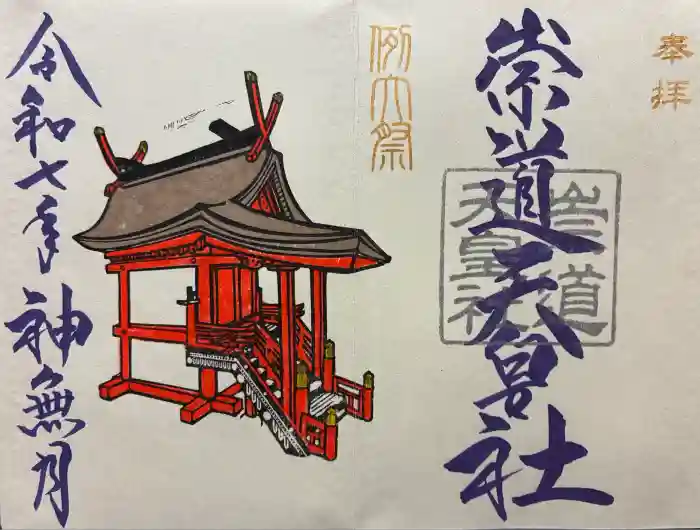 奉拝
崇道天皇社
崇道
天皇社
例大祭
令和七年
神無月